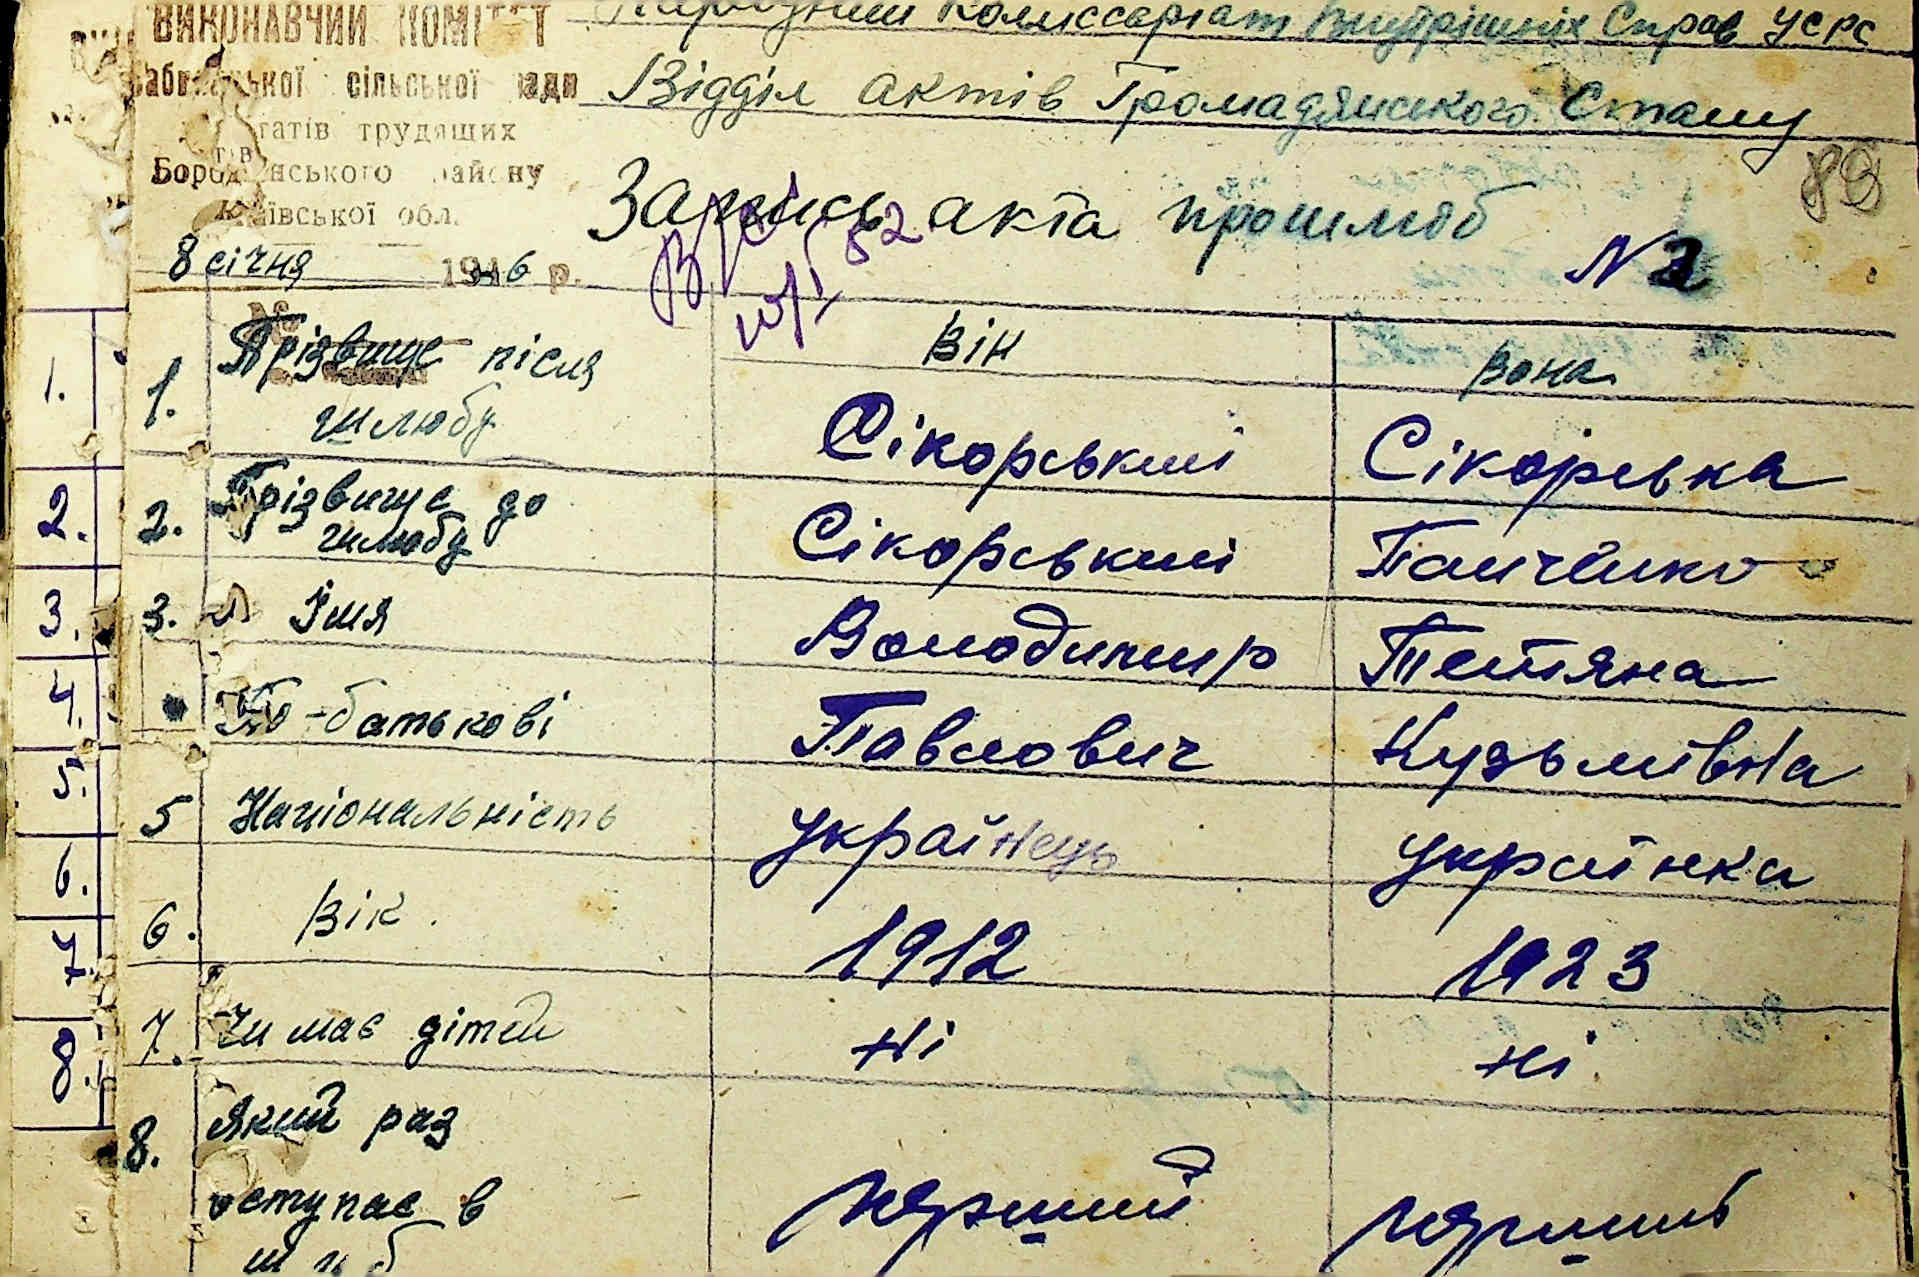 ВИКОНАВЧИЙ КОМІТЕТ
сільської ради
трудящих
Бородянського району
Київської обл.
8 січня 1946 р.
Комиссаріат Внутрішніх Справ УСРС
Відділ актів Громадянського Стану
89
Запись акта про шлюб
N 2
Він Вона
1. 1. Прізвище після шлюбу Сікорський Сікорська
2. 2. Прізвище до шлюбу Сікорський Панченко
3. 3. Імя Володимир Тетяна
4. По-батькові Павлович Кузьмівна
5. 5 Національність Українець Українка
6. 6. Вік. 1912 1923
7. 7. Чи має дітей Ні Ні
8. 8. Який раз
вступає в перший
шлюб